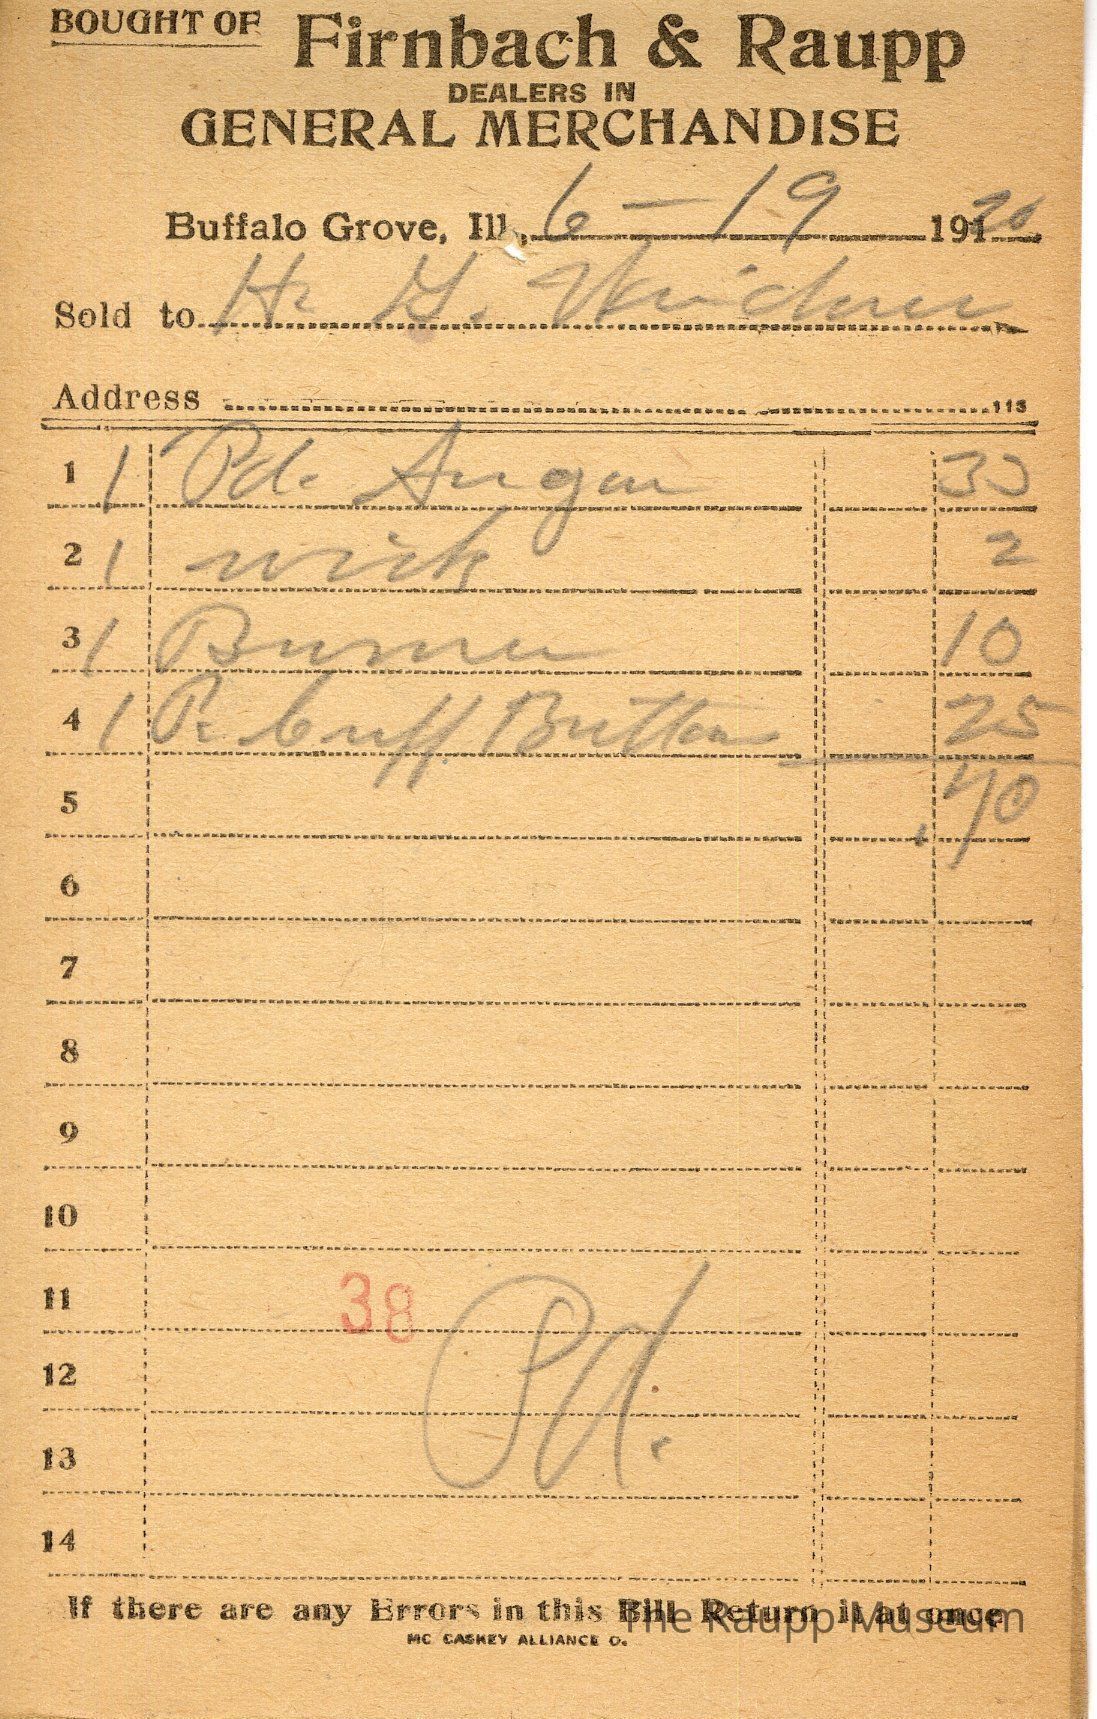 BOUGHT OF Firnbach & Raupp
DEALERS IN
GENERAL MERCHANDISE
Buffalo Grove, Ill., 6-19 191 20
Sold to H. G.
Address 113
1 1 Pd. Sugar 33
2 1 wick 2
3 1 Burner 10
4 1 Pr Cuff Buttons 25
5 .70
6
7
8
9
10
11 38
12 Pd.
13
14
If there are any Errors in this Bill Return it at once
The Raupp Museum
MC CASKEY ALLIANCE O.